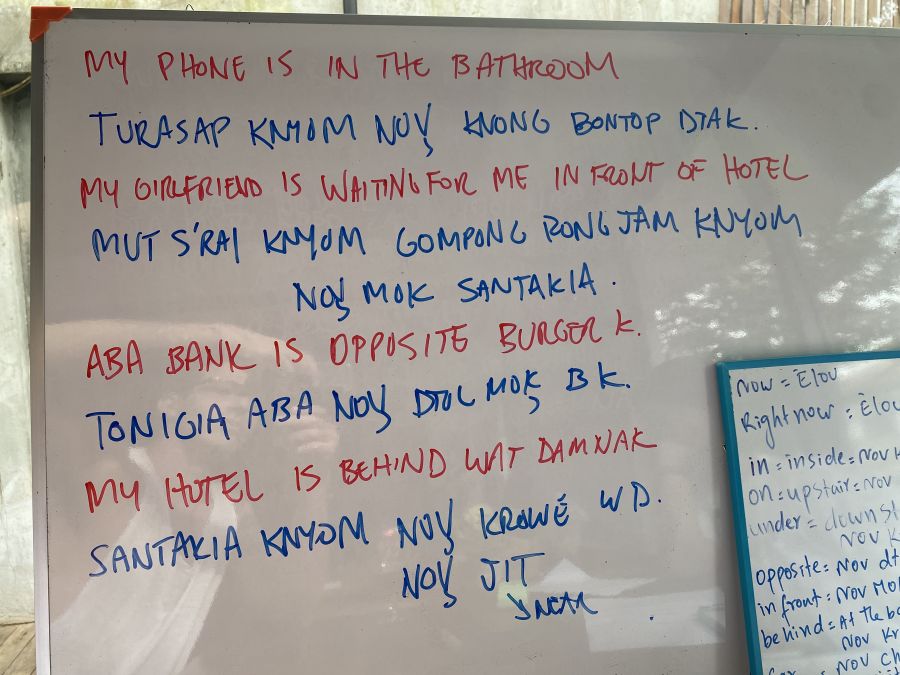 MY PHONE IS IN THE BATHROOM
TURASAP KNYOM NOV̧ KNONG BONTOP DTAK.
MY GIRLFRIEND IS WAITING FOR ME IN FRONT OF HOTEL
MUT S'RAI KNYOM GOMPONG RONG JAM KNYOM
NOV̧ MOK SANTAKIA.
ABA BANK IS OPPOSITE BURGER K.
TONIGIA ABA NOV̧ DTOL MOK̦ BK.
MY HOTEL IS BEHIND WAT DAMNAK
SANTAKIA KNYOM NOV̧ KROWÉ WD.
NOV̧ JIT
now = Élov
Right now = Élov
in = inside = nov
on = upstair = nov
under =
nov
opposite = nov dt
in front = nov mo
behind = At the ba
nov Kr
nov ch